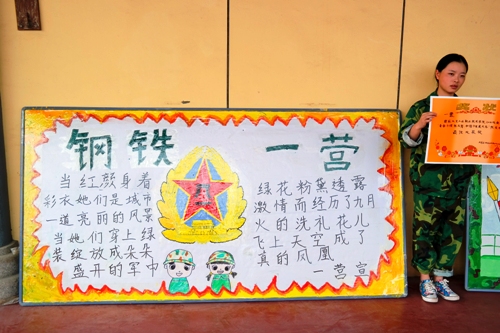 钢铁 一营
当红颜身着
彩衣她们是城市
一道亮丽的风景
当她们穿上绿
装绽放成朵朵
盛开的军中
绿花粉黛透露
激情而经历了九月
火的洗礼花儿
飞上天空成了
真的凤凰
一营宣
奖状